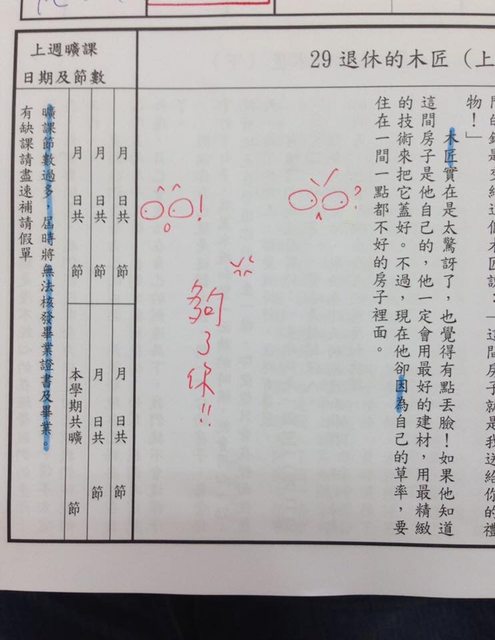 29 退休的木匠（上
物！」
木匠實在是太驚訝了，也覺得有點丟臉！如果他知道
這間房子是他自己的，他一定會用最好的建材，用最精緻
的技術來把它蓋好。不過，現在他卻因為自己的草率，要
住在一間一點都不好的房子裡面。
?
!
夠了你!!
上週曠課
日期及節數
月 日共 節
月 日共 節
月 日共 節
月 日共 節
本學期共曠 節
曠課節數過多，屆時將無法核發畢業證書及畢業。
有缺課請盡速補請假單